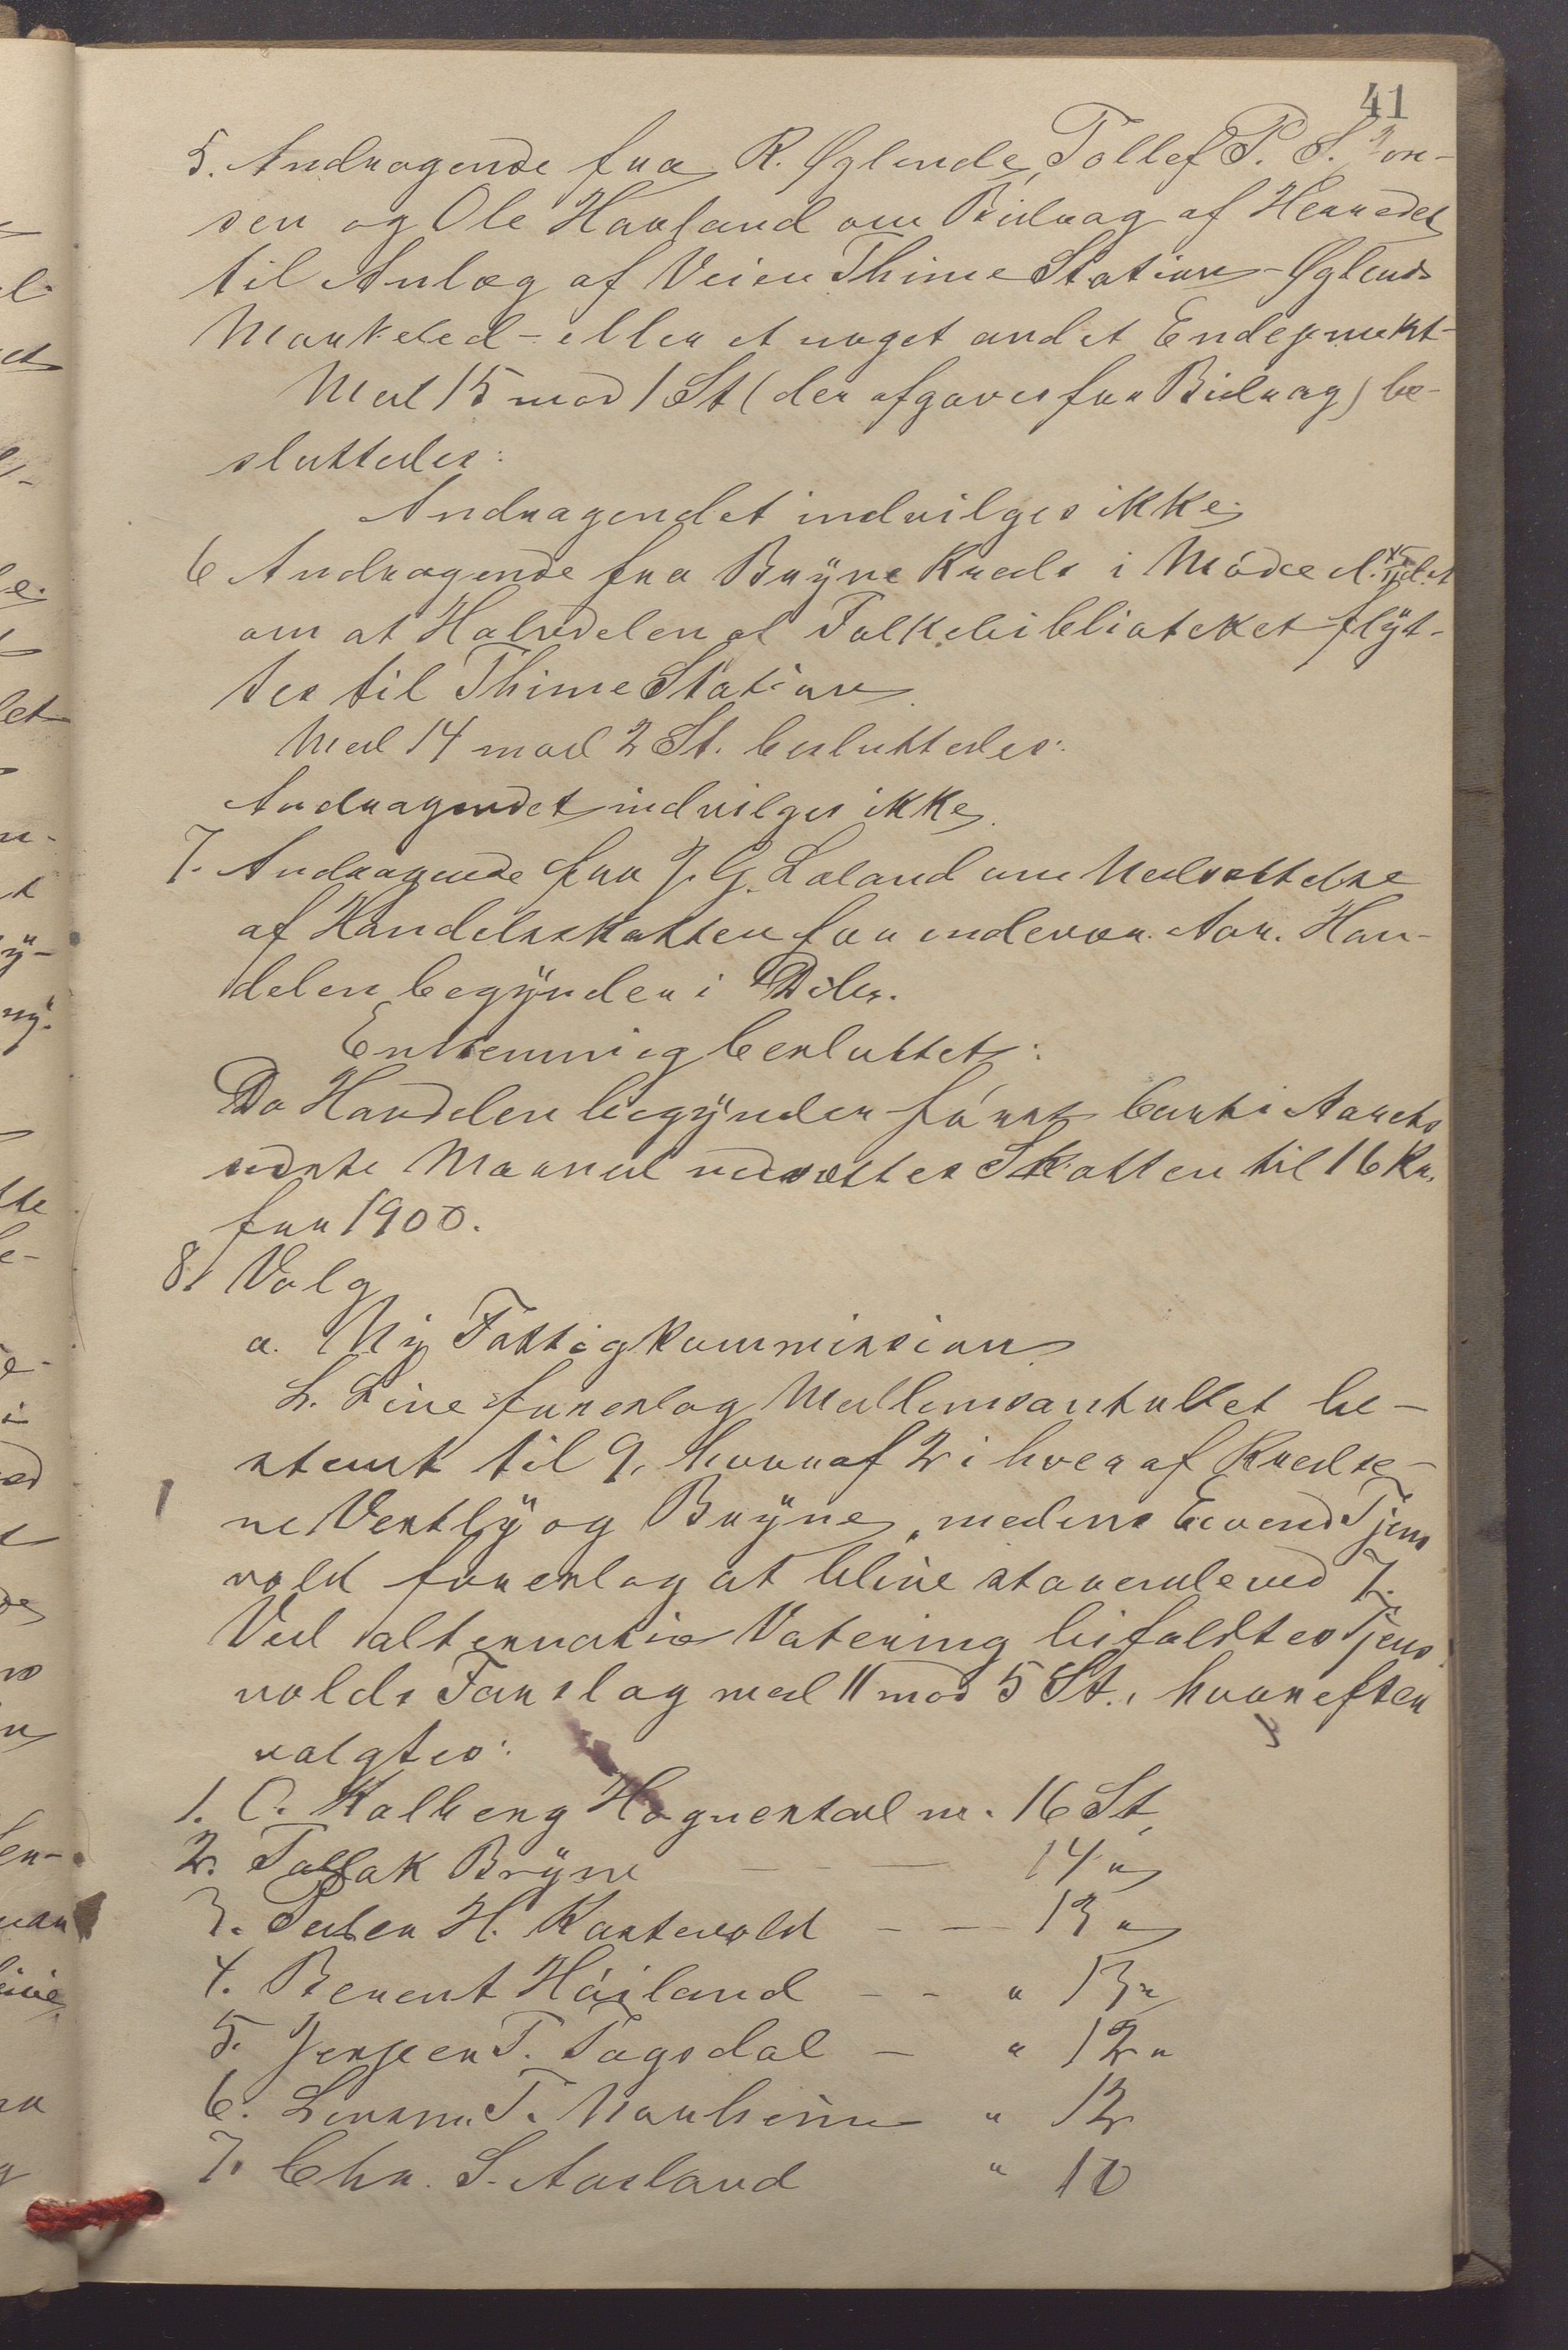 41
5. Andragende fra R. Øglende, Tollef P. S. Jon-
sen og Ole Hauland om Bidrag af Herredet
til Anlæg af Veien Thime Station - Øglends
Markeled - eller et noget andet Endepunkt -
Med 15 mod 1 St (der afgaves for Bidrag) be-
sluttedes:
Andragendet indvilges ikke.
6 Andragende fra Bryne Kreds i Møde d.
om at Halvdelen af Folkebiblioteket flyt-
tes til Thime Station.
Med 14 mod 2 St. besluttedes:
Andragendet indvilges ikke.
7. Andragende fra J. G. Laland om Nedsættelse
af Handelsskatten for indevær. Aar. Han-
delen begynder i Dcbr.
Enstemmig besluttet:
Da Handelen begynder først bort i Aarets
sidste Maaned nedsættes Skatten til 16 Kr.
for 1900.
8. Valg
a. Ny Fattigkommission.
L. Line foreslog Medlemsantallet be-
stemt til 9, hvoraf 2 i hver af Kredse-
ne Vestly og Bryne, medens Eivend Tjens
vold foreslog at blive staaende ved 7.
Ved alternativ Votering bifaldtes Tjens
volds Forslag med 11 mod 5 St., hvorefter
valgtes:
1. O. Kalberg Hognestad m. 16 St.
2. Tallak Bryne - - - 14 "
3. Peder H. Kartevold - - 13 "
4. Berent Høiland - - " 13 "
5. Jesper T. Tagsdal - " 12 "
6. T. Norheim " 12
7. Chr. S. Aasland " 10